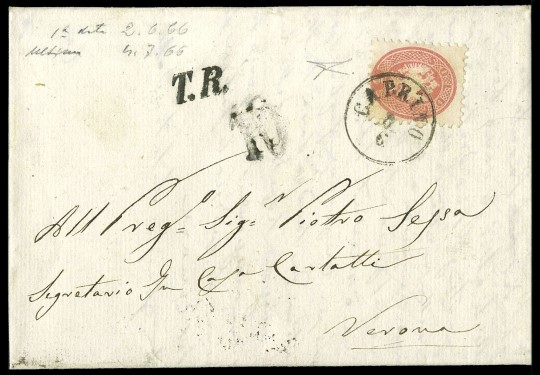 1ª data 2.6.66
4.7.66
T.R.
10
CAPRINO
All Preg. Sig. Pietro Sessa
Segretario In Casa Cartatti
Verona